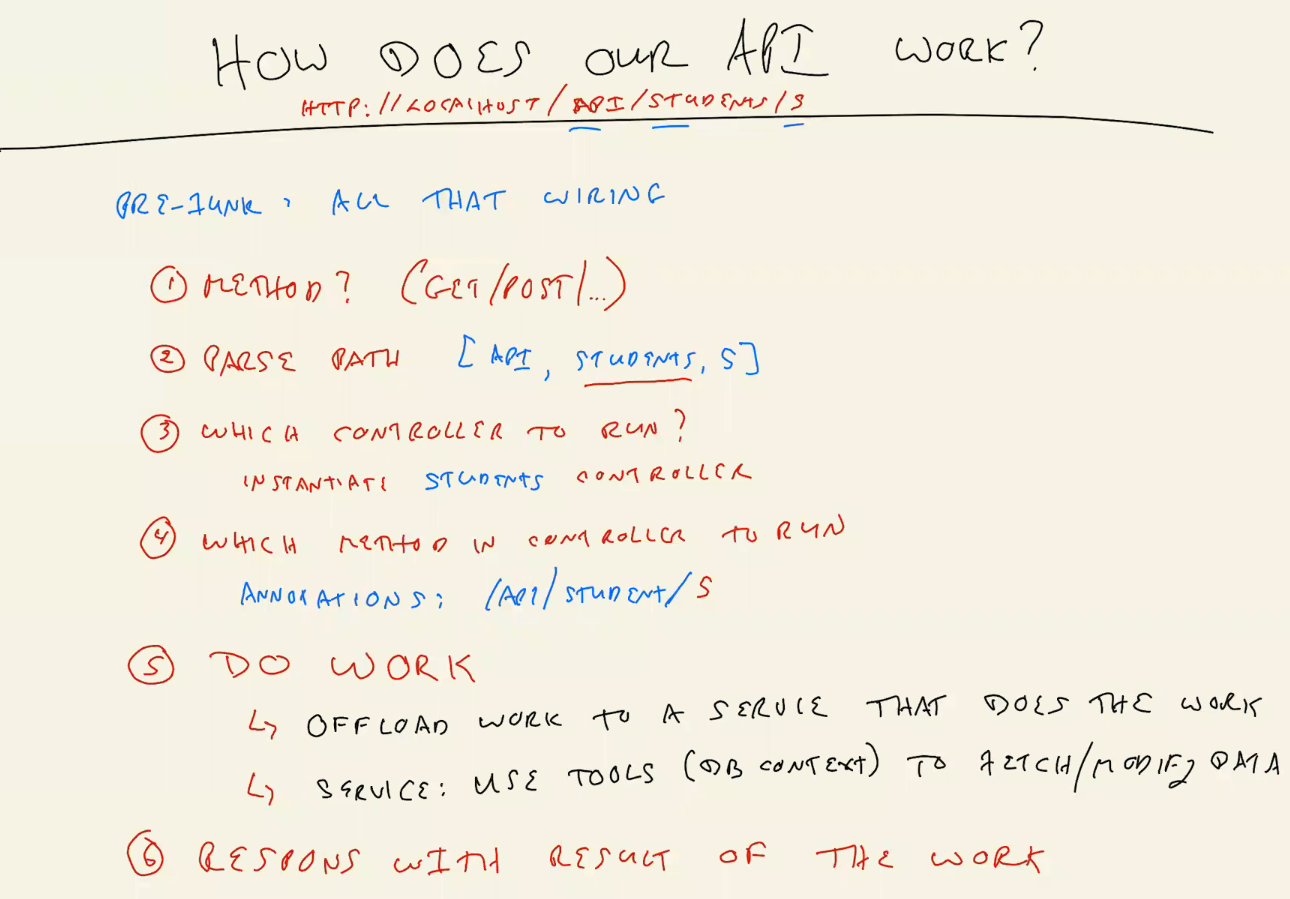 HOW DOES OUR API WORK?
HTTP://LOCALHOST/API/STUDENTS/5
PRE-JUNK: ALL THAT WIRING
① METHOD? (GET/POST/...)
② PARSE PATH [API, STUDENTS, 5]
③ WHICH CONTROLLER TO RUN?
INSTANTIATE STUDENTS CONTROLLER
④ WHICH METHOD IN CONTROLLER TO RUN
ANNOTATIONS: /API/STUDENT/5
⑤ DO WORK
↳ OFFLOAD WORK TO A SERVICE THAT DOES THE WORK
↳ SERVICE: USE TOOLS (DB CONTEXT) TO FETCH/MODIFY DATA
⑥ RESPONS WITH RESULT OF THE WORK